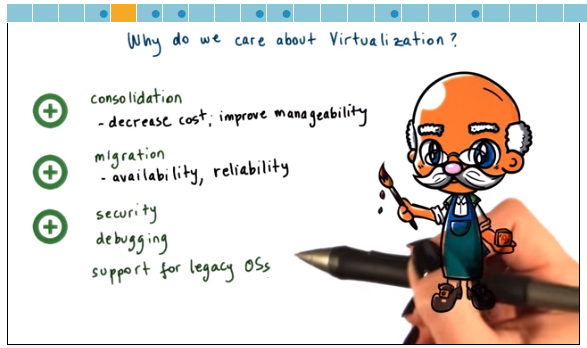 Why do we care about Virtualization?
consolidation
- decrease cost; improve manageability
migration
- availability, reliability
security
debugging
support for legacy OSs